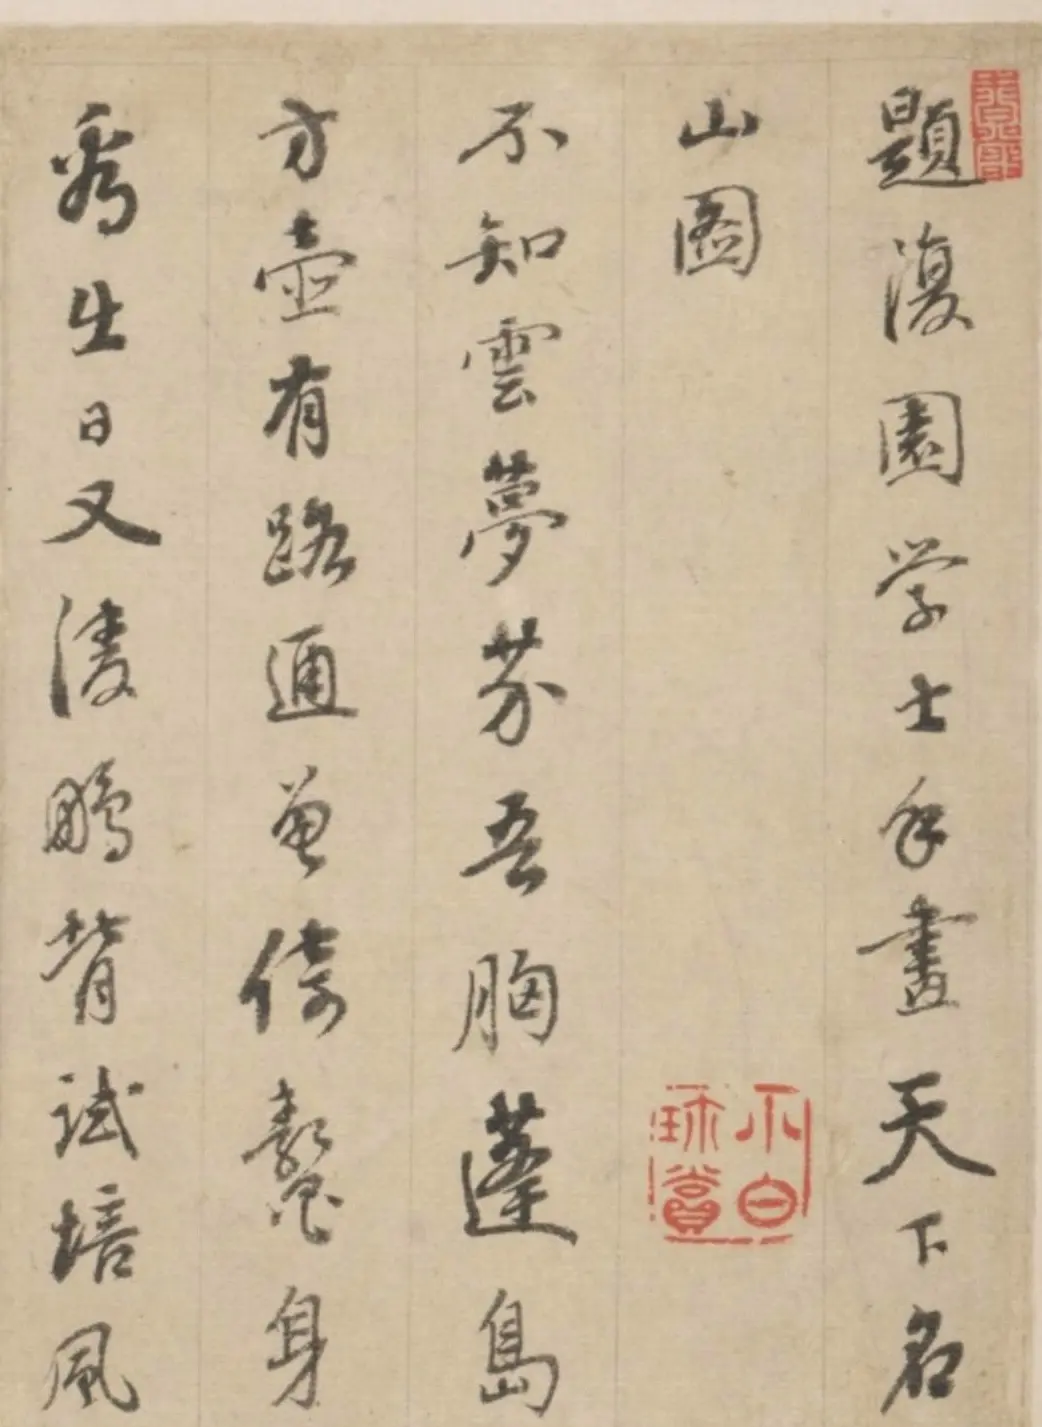 題復園学士手畫天下名
山圖
不知雲夢芥吾胸蓬島
方壺有路通曾倚鼇身
看生日又凌鵬背試培風